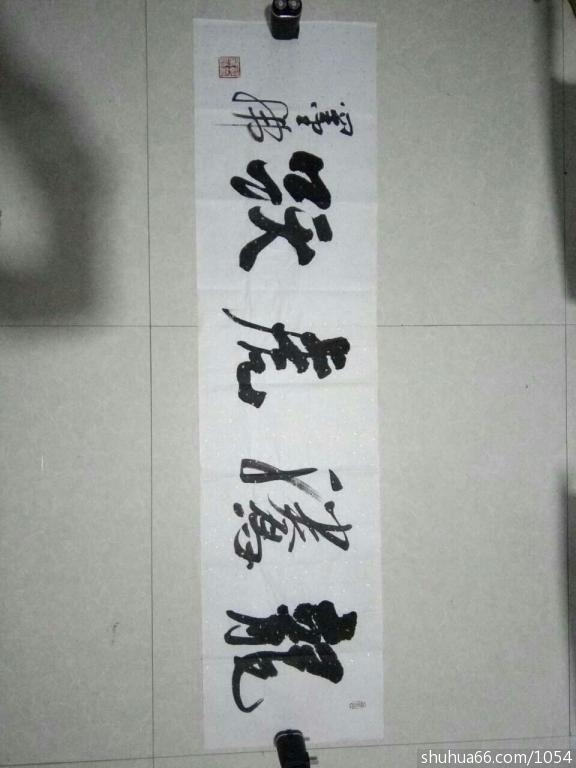 龍騰虎跃
shuhua66.com/1054